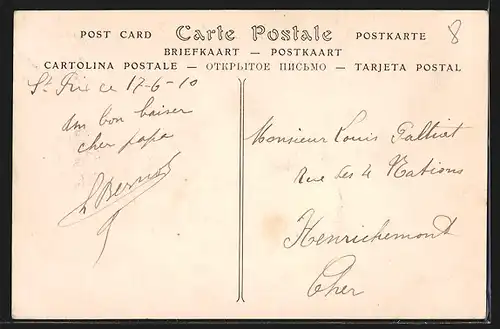 POST CARD Carte Postale POSTKARTE
BRIEFKAART — POSTKAART
CARTOLINA POSTALE — ОТКРЫТОЕ ПИСЬМО — TARJETA POSTAL
8
St Prix ce 17-6-10
un bon baiser
cher papa
Monsieur Louis
Rue des 4 Nations
Henrichemont
Cher